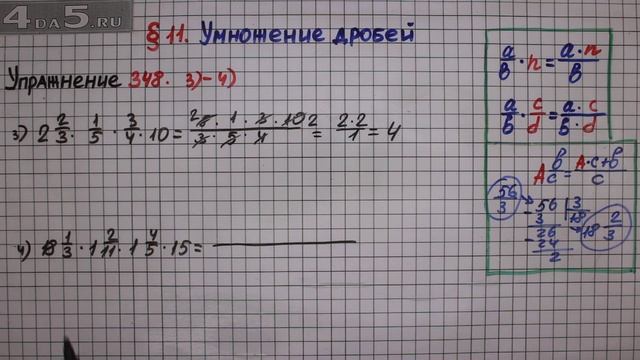 4DA5.RU
§ 11. Умножение дробей
Упражнение 348. 3)-4)
3) 2 2/3 · 1/5 · 3/4 · 10 = 2 8 · 1 · 3 · 10 2 / 3 · 5 · 4 = 2·2/1 = 4
4) 1/3 · 1 2/11 · 1 4/5 · 15 =
a/b · n = a·n/b
a/b · c/d = a·c/b·d
A b/c = A·c+b/c
56/3
- 56 | 3
3 18
26 18 2/3
- 24
2